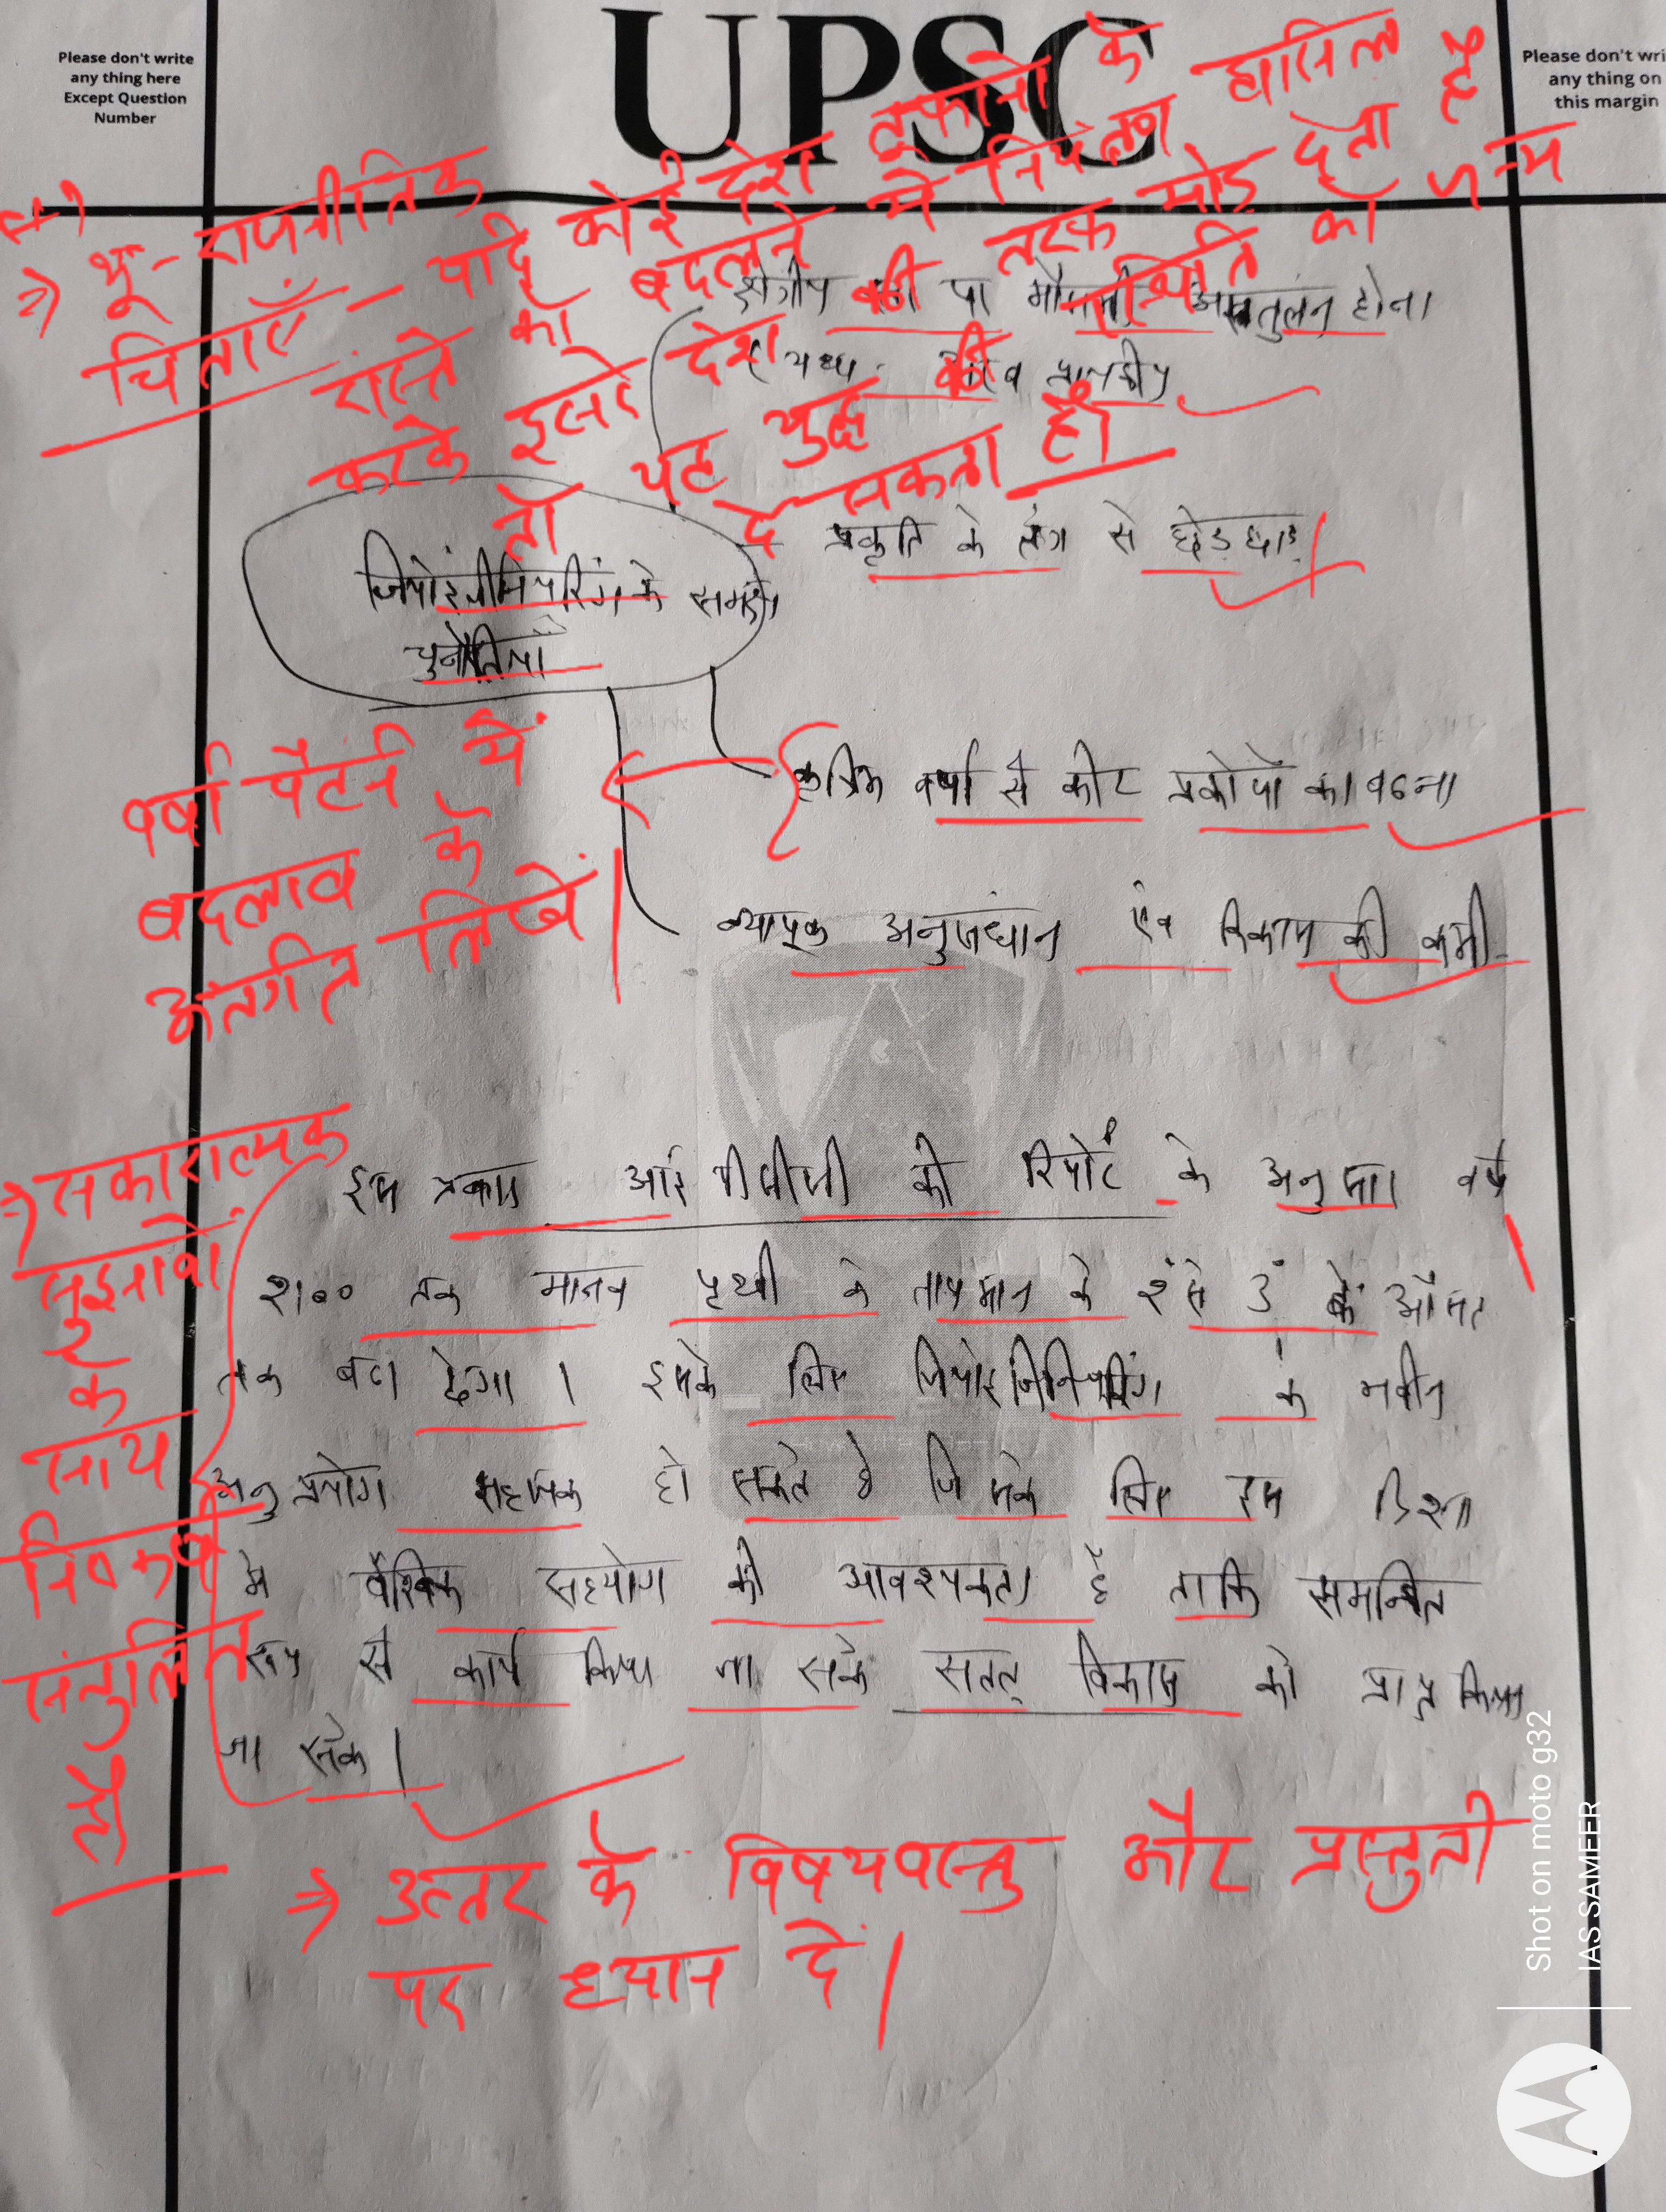 Please don't write
any thing here
Except Question
Number
UPSC
Please don't wri
any thing on
this margin
⇒ भू-राजनीतिक
चिंताएँ - यदि कोई देश तूफानों के
रास्ते को बदलने में नियंत्रण हासिल
करके दूसरे देश की तरफ मोड़ देता है
तो यह युद्ध की स्थिति को जन्म
दे सकता है।
क्षेत्रीय या मौसमी असंतुलन होना
प्रकृति के तंत्र से छेड़छाड़
जियोइंजीनियरिंग के समक्ष
चुनौतियां
वर्षा पैटर्न में
बदलाव के
अंतर्गत लिखें।
कृत्रिम वर्षा से कीट प्रकोपों का बढना
व्यापक अनुसंधान एंव विकास की कमी
⇒ सकारात्मक
सुझावों
के
साथ
निष्कर्ष
संतुलित
है
इस प्रकार आईपीसीसी की रिपोर्ट के अनुसार वर्ष
2100 तक मानव पृथ्वी के तापमान के 2° से 3° के औसत
तक बढा देगा। इसके लिए जियोइंजिनियरिंग के नवीन
अनुप्रयोग सहायक हो सकते है जिसके लिए इस दिशा
मे वैश्विक सहयोग की आवश्यकता है ताकि समन्वित
रूप से कार्य किया जा सके सतत् विकास को प्राप्त किया
जा सके।
⇒ उत्तर के विषयवस्तु और प्रस्तुती
पर ध्यान दें।
Shot on moto g32
IAS SAMEER